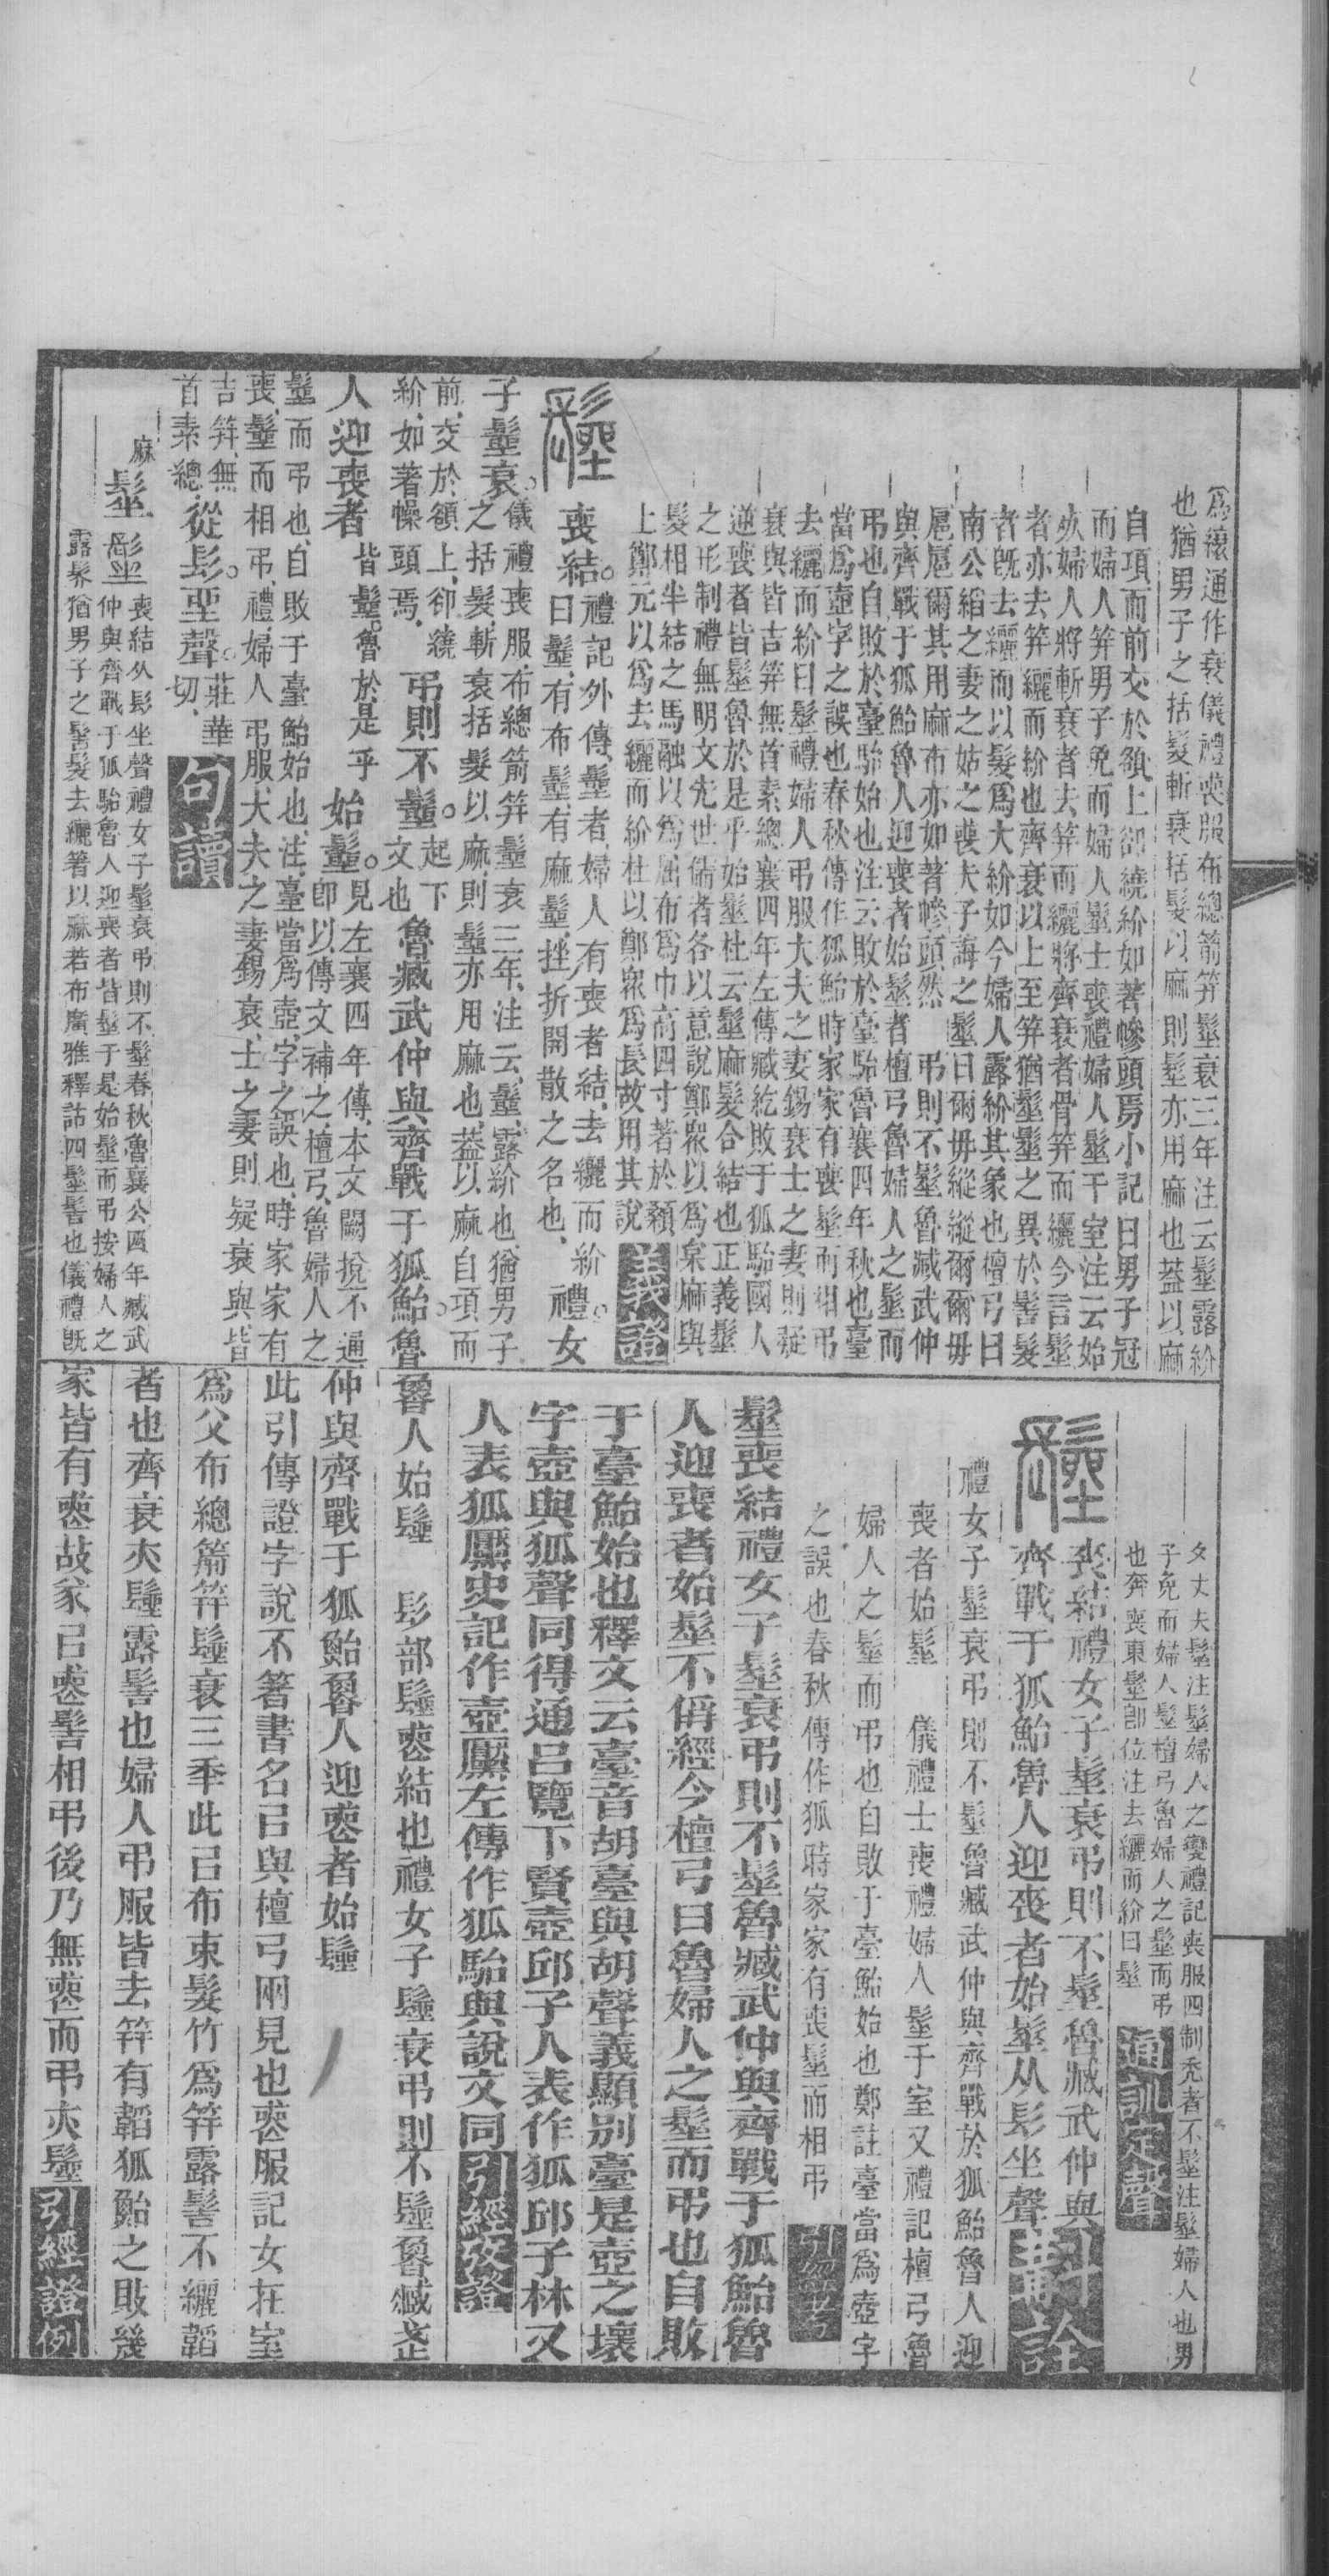 為縗通作衰儀禮喪服布總箭笄髽衰三年注云髽露紒
也猶男子之括髮斬衰括髮以麻則髽亦用麻也葢以麻
自項而前交於額上卻繞紒如著幓頭焉小記曰男子冠
而婦人笄男子免而婦人髽士喪禮婦人髽于室注云始
死婦人將斬衰者去笄而纚將齊衰者骨笄而纚今言髽
者亦去笄纚而紒也齊衰以上至笄猶髽髽之異於髻髮
者既去纚而以髮為大紒如今婦人露紒其象也檀弓曰
南公縚之妻之姑之喪夫子誨之髽曰爾毋縱縱爾爾毋
扈扈爾其用麻布亦如著幓頭然 弔則不髽魯臧武仲
與齊戰于狐鮐魯人迎喪者始髽者檀弓魯婦人之髽而
弔也自敗於臺駘始也注云敗於臺駘魯襄四年秋也臺
當為壺字之誤也春秋傳作狐鮐時家家有喪髽而相弔
去纚而紒曰髽禮婦人弔服大夫之妻錫衰士之妻則疑
衰與皆吉笄無首素總襄四年左傳臧紇敗于狐駘國人
逆喪者皆髽魯於是乎始髽杜云髽麻髮合結也正義髽
之形制禮無明文先世儒者各以意說鄭眾以為枲麻與
髮相半結之馬融以為屈布為巾高四寸著於顙
上鄭元以為去纚而紒杜以鄭眾為長故用其說 義證
喪結禮記外傳髽者婦人有喪者結去纚而紒
曰髽有布髽有麻髽挫折開散之名也 禮女
子髽衰儀禮喪服布總箭笄髽衰三年注云髽露紒也猶男子
之括髮斬衰括髮以麻則髽亦用麻也葢以麻自項而
前交於額上卻繞
紒如著幧頭焉 弔則不髽起下文也 魯臧武仲與齊戰于狐鮐魯
人迎喪者皆髽魯於是乎 始髽見左襄四年傳本文闕挩不通
即以傳文補之檀弓魯婦人之
髽而弔也自敗于臺鮐始也注臺當為壺字之誤也時家家有
喪髽而相弔禮婦人弔服大夫之妻錫衰士之妻則疑衰與皆
吉笄無
首素總 從髟坐聲莊華切 句讀
麻 髽 喪結从髟坐聲禮女子髽衰弔則不髽春秋魯襄公四年臧武
仲與齊戰于狐駘魯人迎喪者皆髽于是始髽而弔按婦人之
露髻猶男子之髻髮去纚箸以麻若布廣雅釋詁四髽髻也儀禮既
夕丈夫髽注髽婦人之變禮記喪服四制禿者不髽注髽婦人也男
子免而婦人髽檀弓魯婦人之髽而弔
也奔喪東髽卽位注去纚而紒曰髽 通訓定聲
喪結禮女子髽衰弔則不髽魯臧武仲與
齊戰于狐鮐魯人迎喪者始髽从髟坐聲 斠詮
禮女子髽衰弔則不髽魯臧武仲與齊戰於狐鮐魯人迎
喪者始髽 儀禮士喪禮婦人髽于室又禮記檀弓魯
婦人之髽而弔也自敗于臺鮐始也鄭註臺當為壺字
之誤也春秋傳作狐時家家有喪髽而相弔
髽喪結禮女子髽衰弔則不髽魯臧武仲與齊戰于狐鮐魯
人迎喪者始髽不偁經今檀弓曰魯婦人之髽而弔也自敗
于臺鮐始也釋文云臺音胡臺與胡聲義顯別臺是壺之壞
字壺與狐聲同得通呂覽下賢壺邱子人表作狐邱子林又
人表狐黶史記作壺黶左傳作狐駘與說文同 引經攷證
魯人始髽 髟部髽喪結也禮女子髽衰弔則不髽魯臧武
仲與齊戰于狐鮐魯人迎喪者始髽
此引傳證字說不箸書名㠯與檀弓兩見也喪服記女在室
為父布總箭笄髽衰三年此㠯布束髮竹為笄露髻不纚韜
者也齊衰亦髽露髻也婦人弔服皆去笄有韜狐鮐之敗幾
家皆有喪故家㠯喪髻相弔後乃無喪而弔亦髽 引經證例